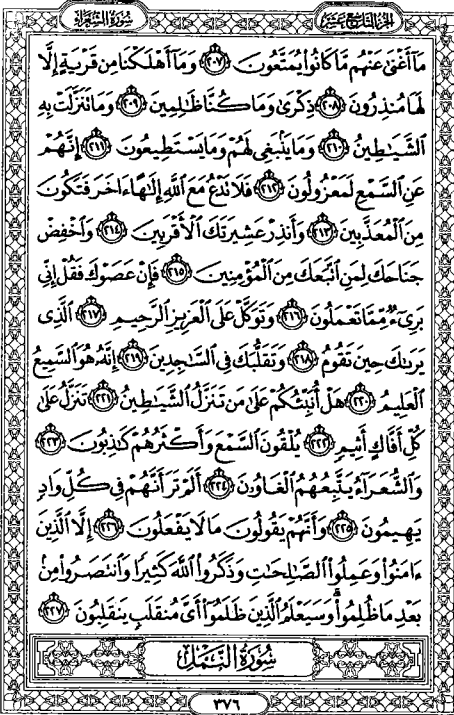 سُورَةُ الشُّعَرَاءِ
الجزء التاسع عشر
مَآ أَغْنَىٰ عَنْهُم مَّا كَانُوا۟ يُمَتَّعُونَ ﴿٢٠٧﴾ وَمَآ أَهْلَكْنَا مِن قَرْيَةٍ إِلَّا
لَهَا مُنذِرُونَ ﴿٢٠٨﴾ ذِكْرَىٰ وَمَا كُنَّا ظَٰلِمِينَ ﴿٢٠٩﴾ وَمَا تَنَزَّلَتْ بِهِ
ٱلشَّيَٰطِينُ ﴿٢١٠﴾ وَمَا يَنۢبَغِى لَهُمْ وَمَا يَسْتَطِيعُونَ ﴿٢١١﴾ إِنَّهُمْ
عَنِ ٱلسَّمْعِ لَمَعْزُولُونَ ﴿٢١٢﴾ فَلَا تَدْعُ مَعَ ٱللَّهِ إِلَٰهًا ءَاخَرَ فَتَكُونَ
مِنَ ٱلْمُعَذَّبِينَ ﴿٢١٣﴾ وَأَنذِرْ عَشِيرَتَكَ ٱلْأَقْرَبِينَ ﴿٢١٤﴾ وَٱخْفِضْ
جَنَاحَكَ لِمَنِ ٱتَّبَعَكَ مِنَ ٱلْمُؤْمِنِينَ ﴿٢١٥﴾ فَإِنْ عَصَوْكَ فَقُلْ إِنِّى
بَرِىٓءٌ مِّمَّا تَعْمَلُونَ ﴿٢١٦﴾ وَتَوَكَّلْ عَلَى ٱلْعَزِيزِ ٱلرَّحِيمِ ﴿٢١٧﴾ ٱلَّذِى
يَرَىٰكَ حِينَ تَقُومُ ﴿٢١٨﴾ وَتَقَلُّبَكَ فِى ٱلسَّٰجِدِينَ ﴿٢١٩﴾ إِنَّهُۥ هُوَ ٱلسَّمِيعُ
ٱلْعَلِيمُ ﴿٢٢٠﴾ هَلْ أُنَبِّئُكُمْ عَلَىٰ مَن تَنَزَّلُ ٱلشَّيَٰطِينُ ﴿٢٢١﴾ تَنَزَّلُ عَلَىٰ
كُلِّ أَفَّاكٍ أَثِيمٍ ﴿٢٢٢﴾ يُلْقُونَ ٱلسَّمْعَ وَأَكْثَرُهُمْ كَٰذِبُونَ ﴿٢٢٣﴾
وَٱلشُّعَرَآءُ يَتَّبِعُهُمُ ٱلْغَاوُۥنَ ﴿٢٢٤﴾ أَلَمْ تَرَ أَنَّهُمْ فِى كُلِّ وَادٍ
يَهِيمُونَ ﴿٢٢٥﴾ وَأَنَّهُمْ يَقُولُونَ مَا لَا يَفْعَلُونَ ﴿٢٢٦﴾ إِلَّا ٱلَّذِينَ
ءَامَنُوا۟ وَعَمِلُوا۟ ٱلصَّٰلِحَٰتِ وَذَكَرُوا۟ ٱللَّهَ كَثِيرًا وَٱنتَصَرُوا۟ مِنۢ
بَعْدِ مَا ظُلِمُوا۟ ۗ وَسَيَعْلَمُ ٱلَّذِينَ ظَلَمُوٓا۟ أَىَّ مُنقَلَبٍ يَنقَلِبُونَ ﴿٢٢٧﴾
سُورَةُ النَّمْلِ
٣٧٦